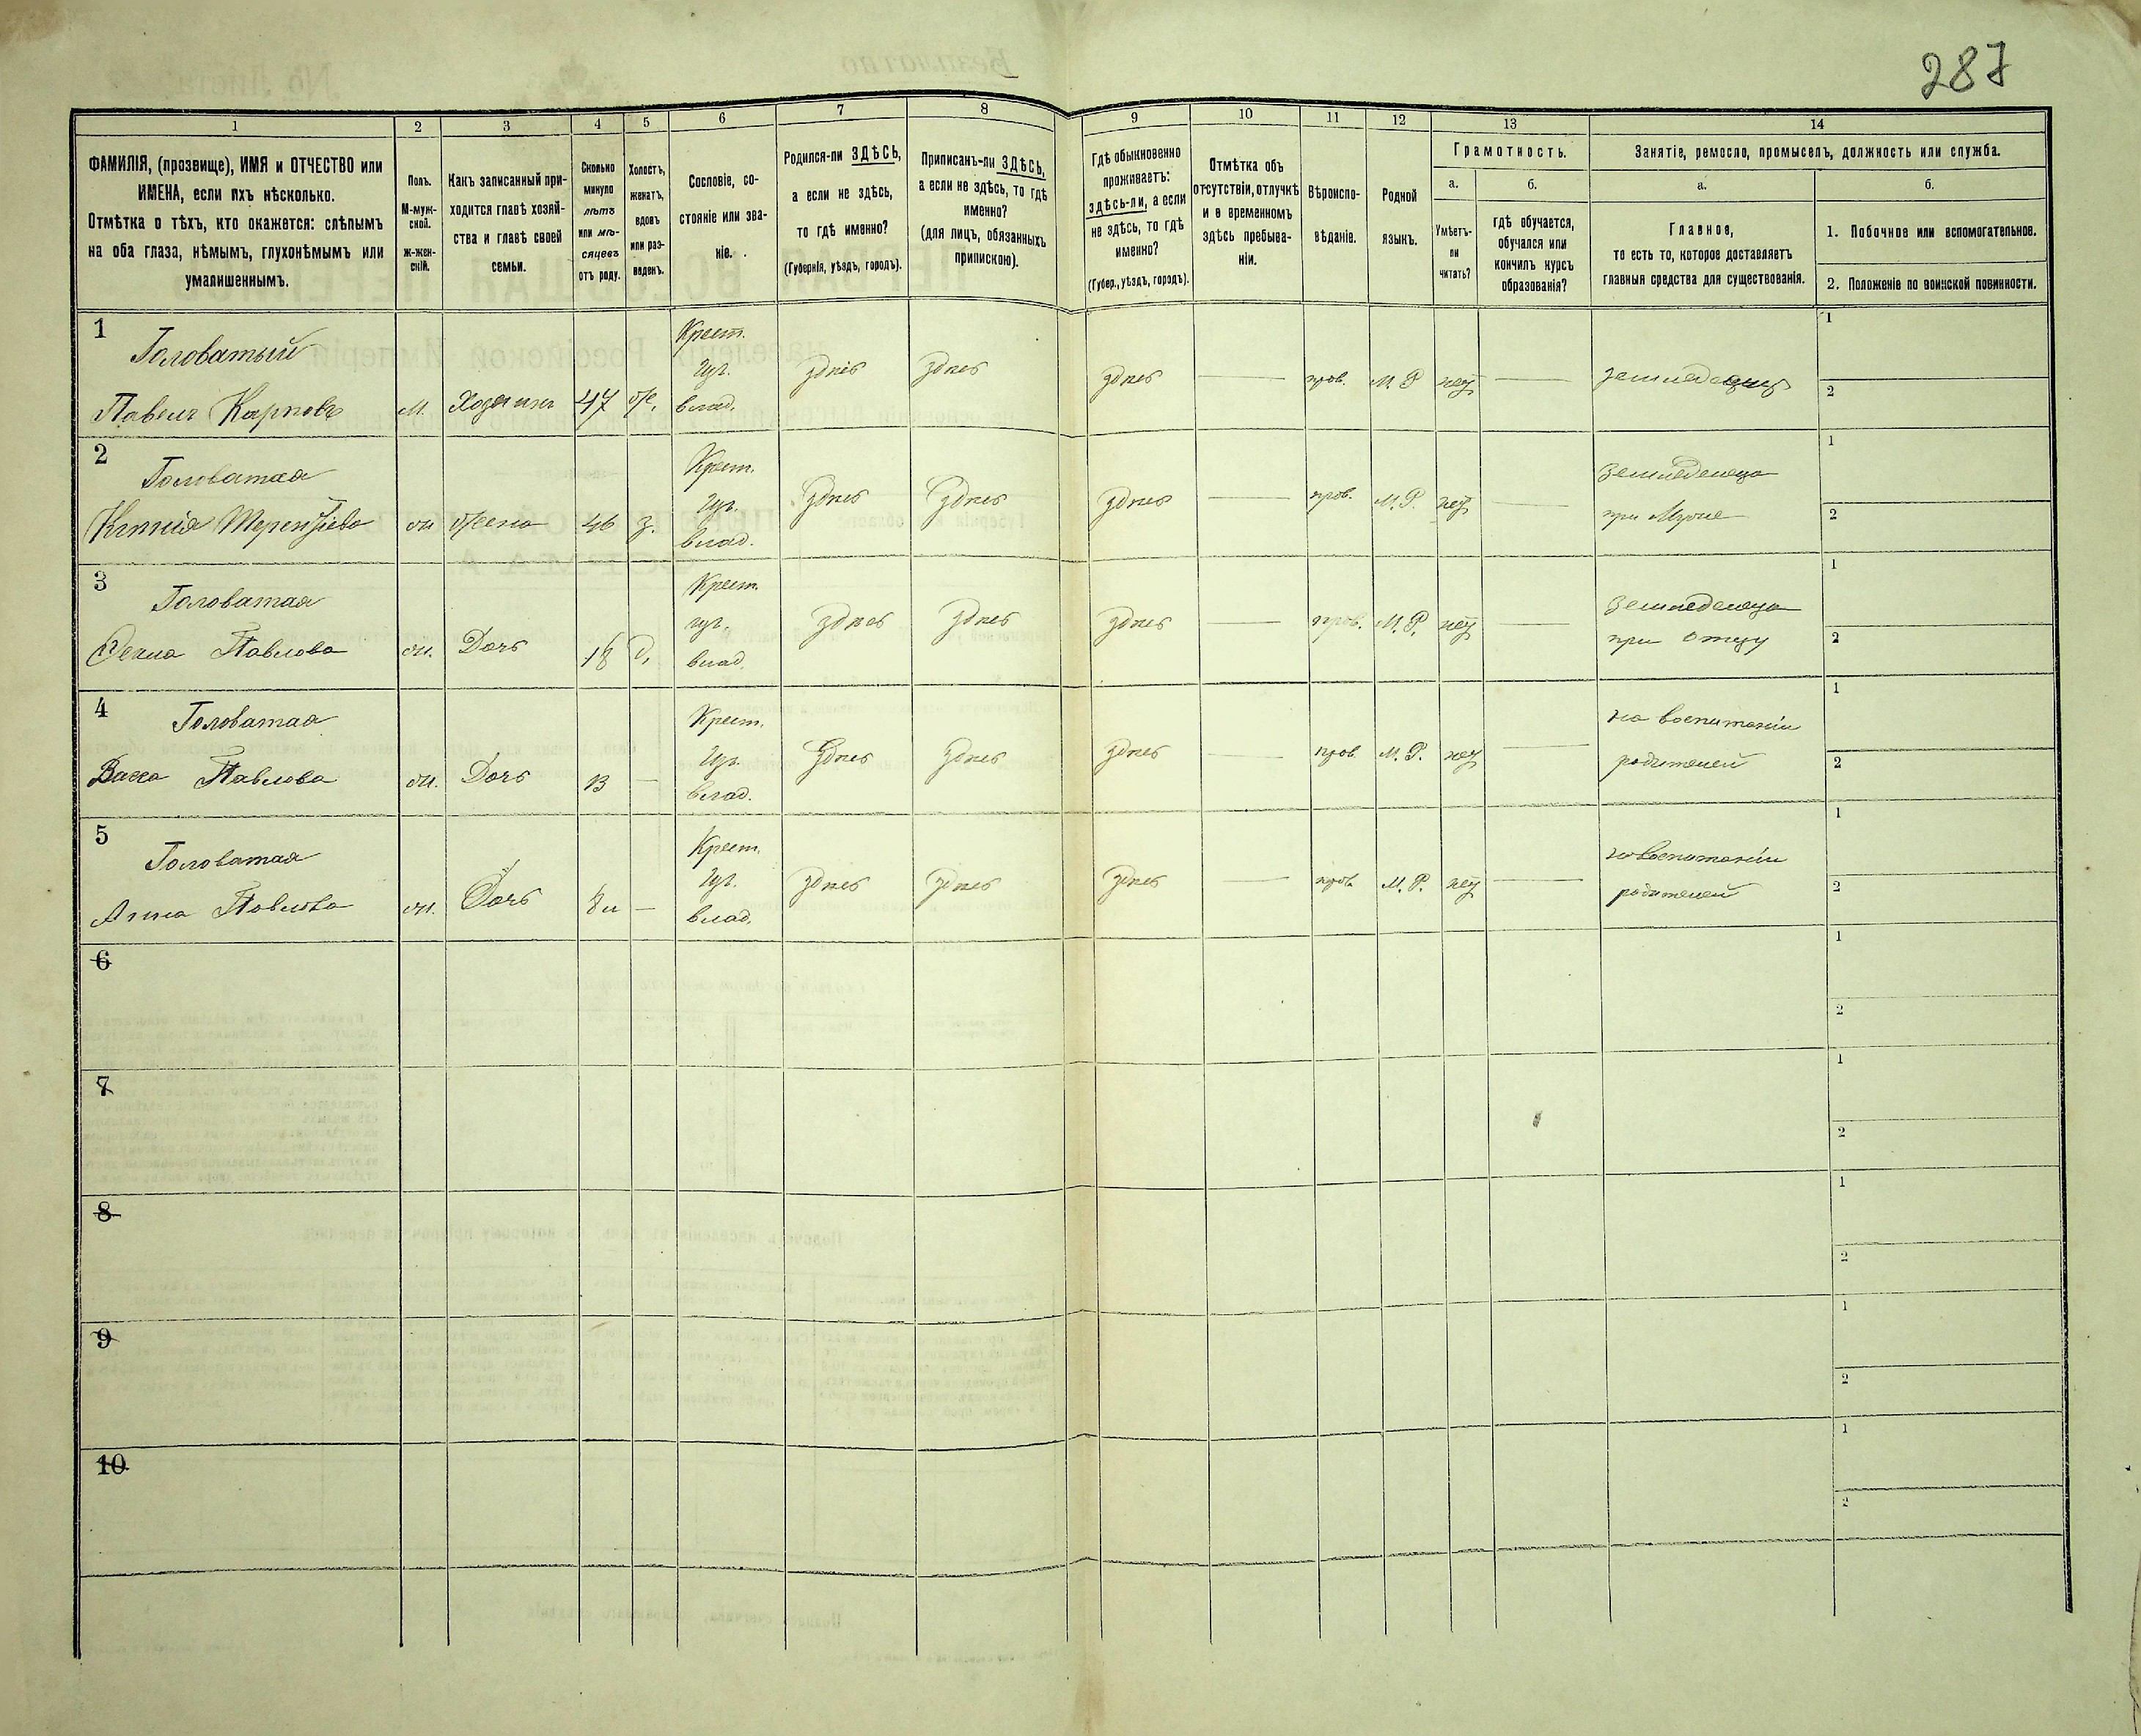 287
1 2 3 4 5 6 7 8 9 10 11 12 13 14
ФАМИЛІЯ, (прозвище), ИМЯ и ОТЧЕСТВО или
ИМЕНА, если ихъ нѣсколько.
Отмѣтка о тѣхъ, кто окажется: слѣпымъ
на оба глаза, нѣмымъ, глухонѣмымъ или
умалишеннымъ.
Полъ.
М-муж-
ской.
Ж-жен-
скій.
Какъ записанный при-
ходится главѣ хозяй-
ства и главѣ своей
семьи.
Сколько
минуло
лѣтъ
или мѣ-
сяцевъ
отъ роду.
Холостъ,
женатъ,
вдовъ
или раз-
веденъ.
Сословіе, со-
стояніе или зва-
ніе.
Родился-ли ЗДѢСЬ,
а если не здѣсь,
то гдѣ именно?
(Губернія, уѣздъ, городъ).
Приписанъ-ли ЗДѢСЬ,
а если не здѣсь, то гдѣ
именно?
(для лицъ, обязанныхъ
припискою).
Гдѣ обыкновенно
проживаетъ:
здѣсь-ли, а если
не здѣсь, то гдѣ
именно?
(Губер., уѣздъ, городъ).
Отмѣтка объ
отсутствіи, отлучкѣ
и о временномъ
здѣсь пребыва-
ніи.
Вѣроиспо-
вѣданіе.
Родной
языкъ.
Грамотность.
а.
Умѣетъ-
ли
читать?
б.
гдѣ обучается,
обучался или
кончилъ курсъ
образованія?
Занятіе, ремесло, промыселъ, должность или служба.
а.
Главное,
то есть то, которое доставляетъ
главныя средства для существованія.
б.
1. Побочное или вспомогательное.
2. Положеніе по воинской повинности.
1 Головатый Крест. 1
Павелъ Карповъ М. Хозяинъ 47 ж. влад. здесь здесь здесь — прав. М. Р. нет — 2
2 Головатая Крест. земледелецъ 1
Ксенія Терентіева ж жена 46 з. влад. здесь здесь здесь — прав. М. Р. нет — при Муже 2
3 Головатая Крест. 1
Фекла Павлова ж. Дочь 18 д. влад. здесь здесь здесь — прав. М. Р. нет — при отцу 2
4 Головатая Крест. на воспитаніи 1
Васса Павлова ж. Дочь 13 — влад. здесь здесь здесь — прав. М. Р. нет — родителей 2
5 Головатая Крест. на воспитаніи 1
Анна Павлова ж. Дочь — влад. здесь здесь здесь — прав. М. Р. нет — родителей 2
6 1
2
7 1
2
8 1
2
9 1
2
10 1
2